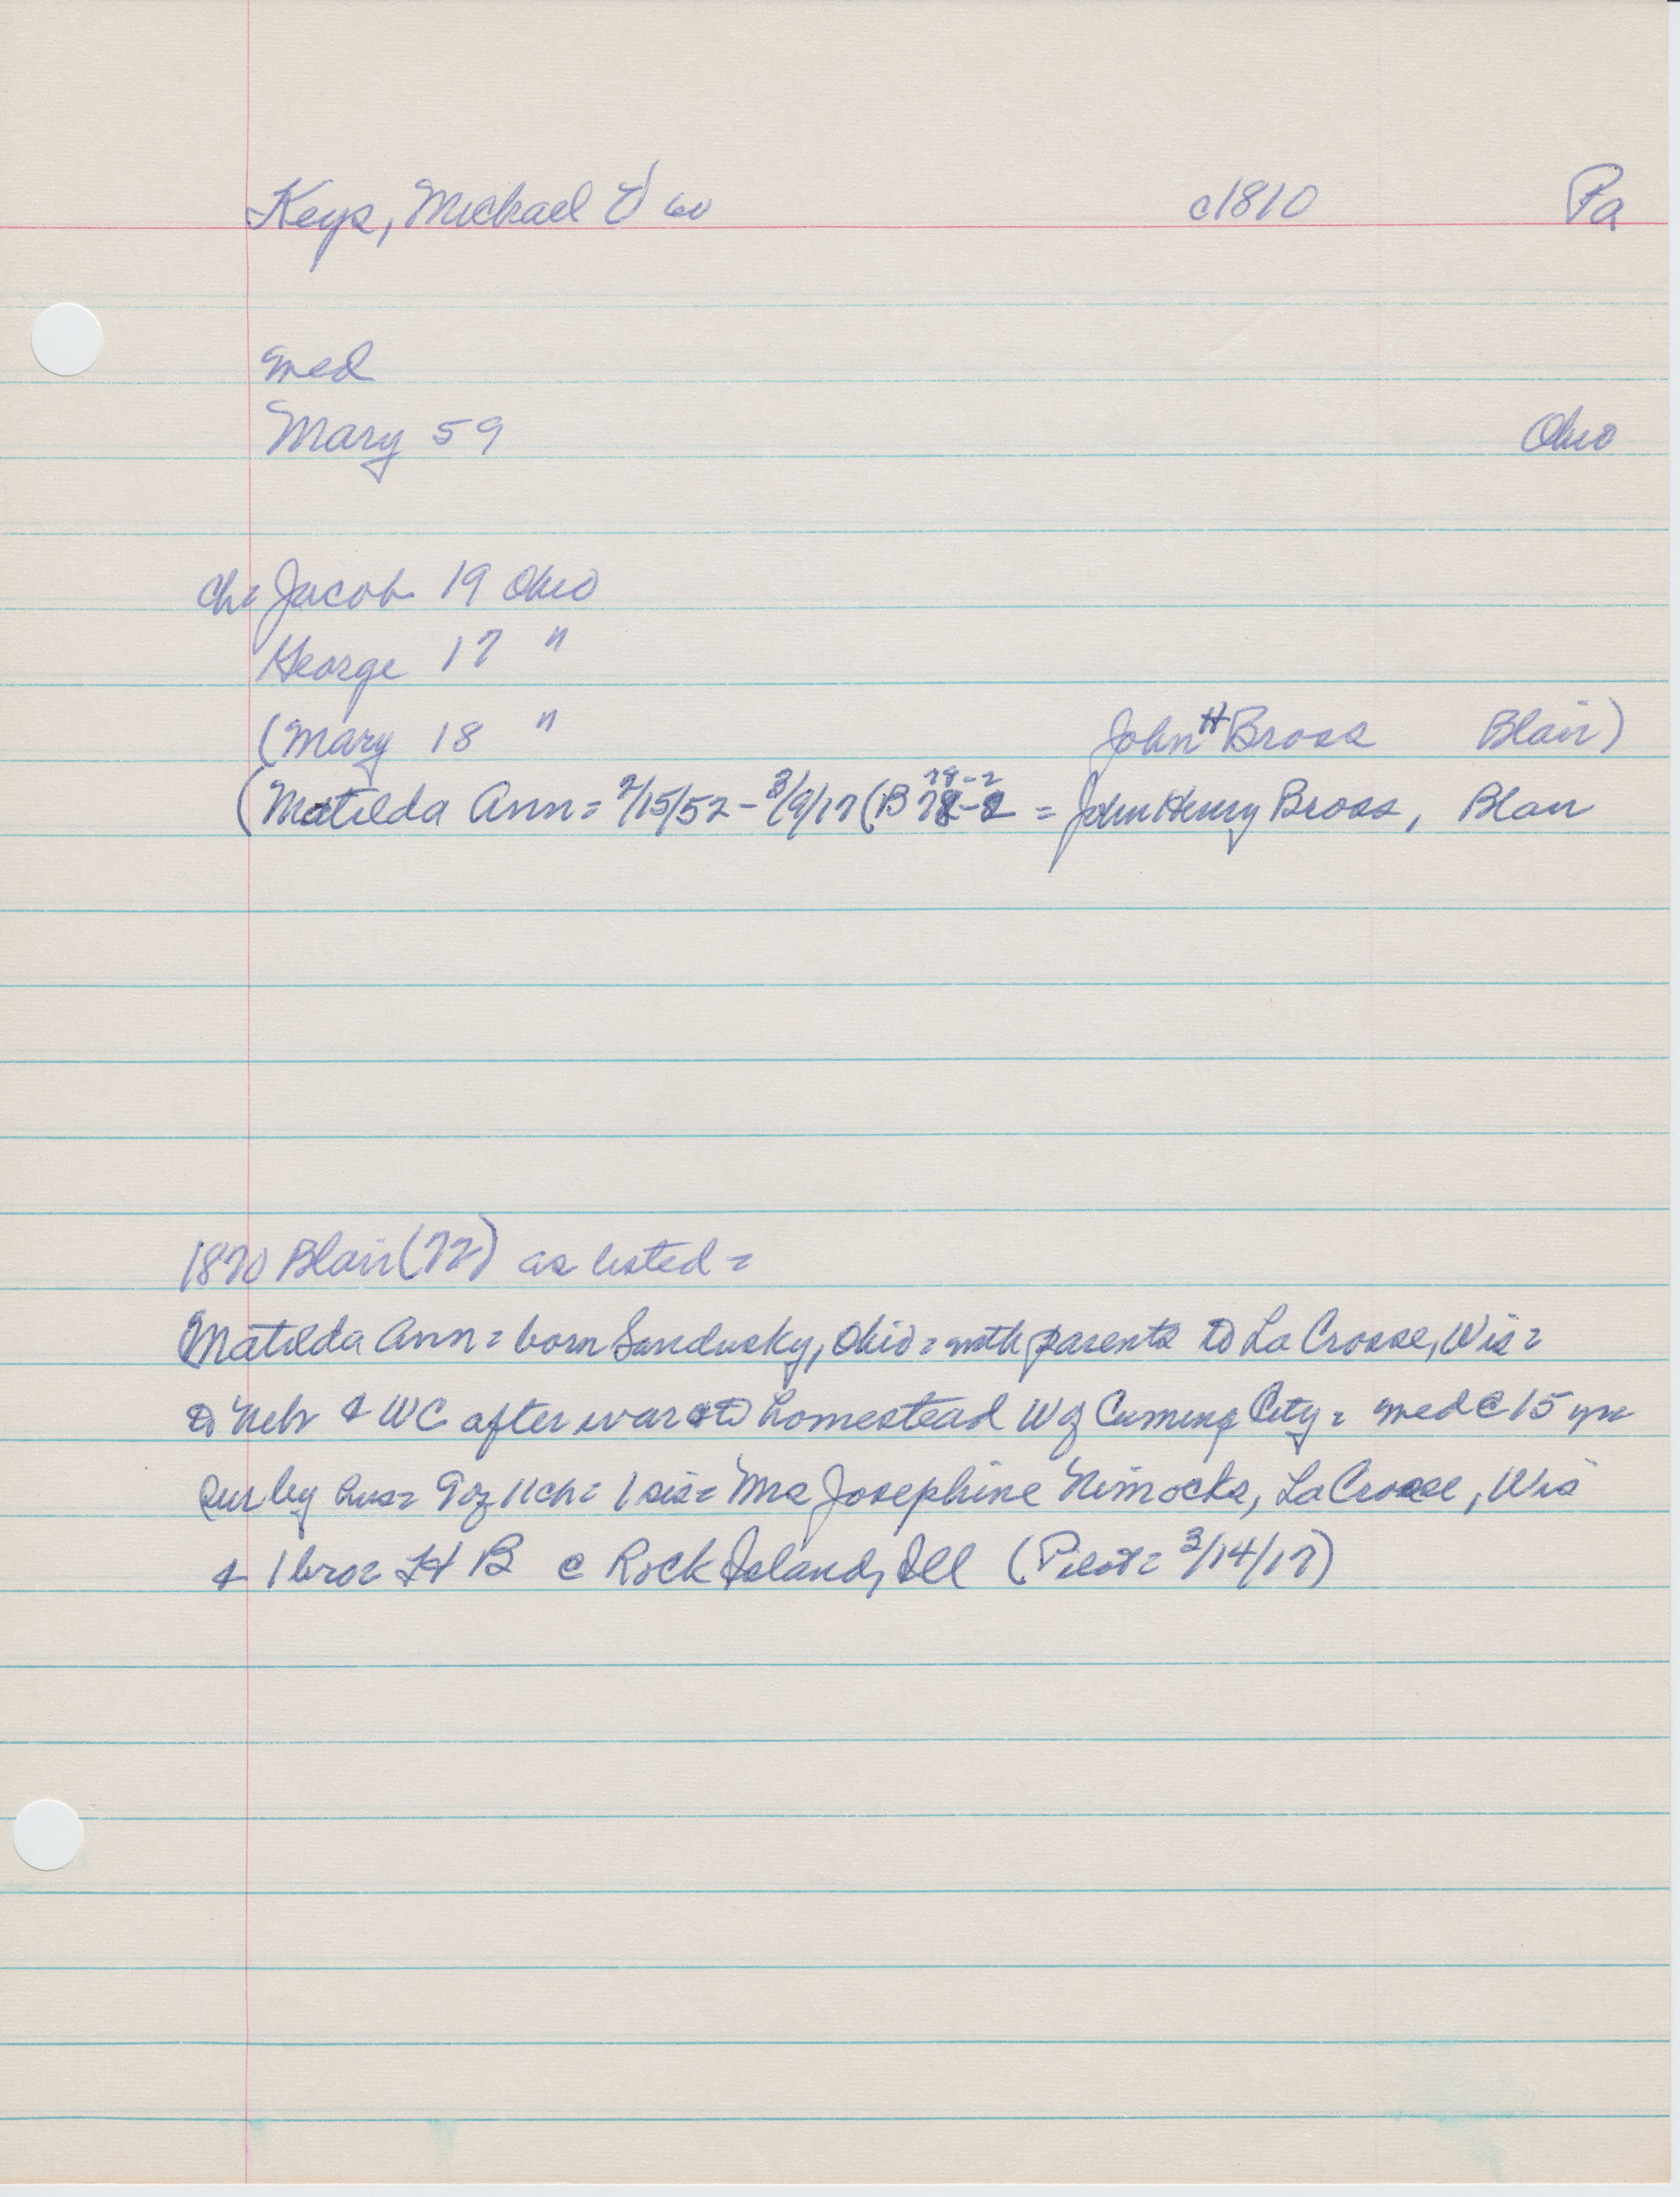 Keys, Michael 60 c1810 Pa
med
Mary 59 Ohio
ch= Jacob 19 Ohio
George 17 "
(Mary 18 " John H Bross Blair)
(Matilda Ann = 2/15/52 - 3/9/17 (B 78-2 = John Henry Bross, Blair
1870 Blair (72) as listed =
Matilda Ann = born Sandusky, Ohio = with parents to La Crosse, Wis =
to Nebr & WC after war to homestead W of Cuming City = med @ 15 yrs
sur by hus = 9 of 11 ch = 1 sis = Mrs Josephine Nimocks, La Crosse, Wis
& 1 bro = H B @ Rock Island, Ill (Pilot = 3/14/17)